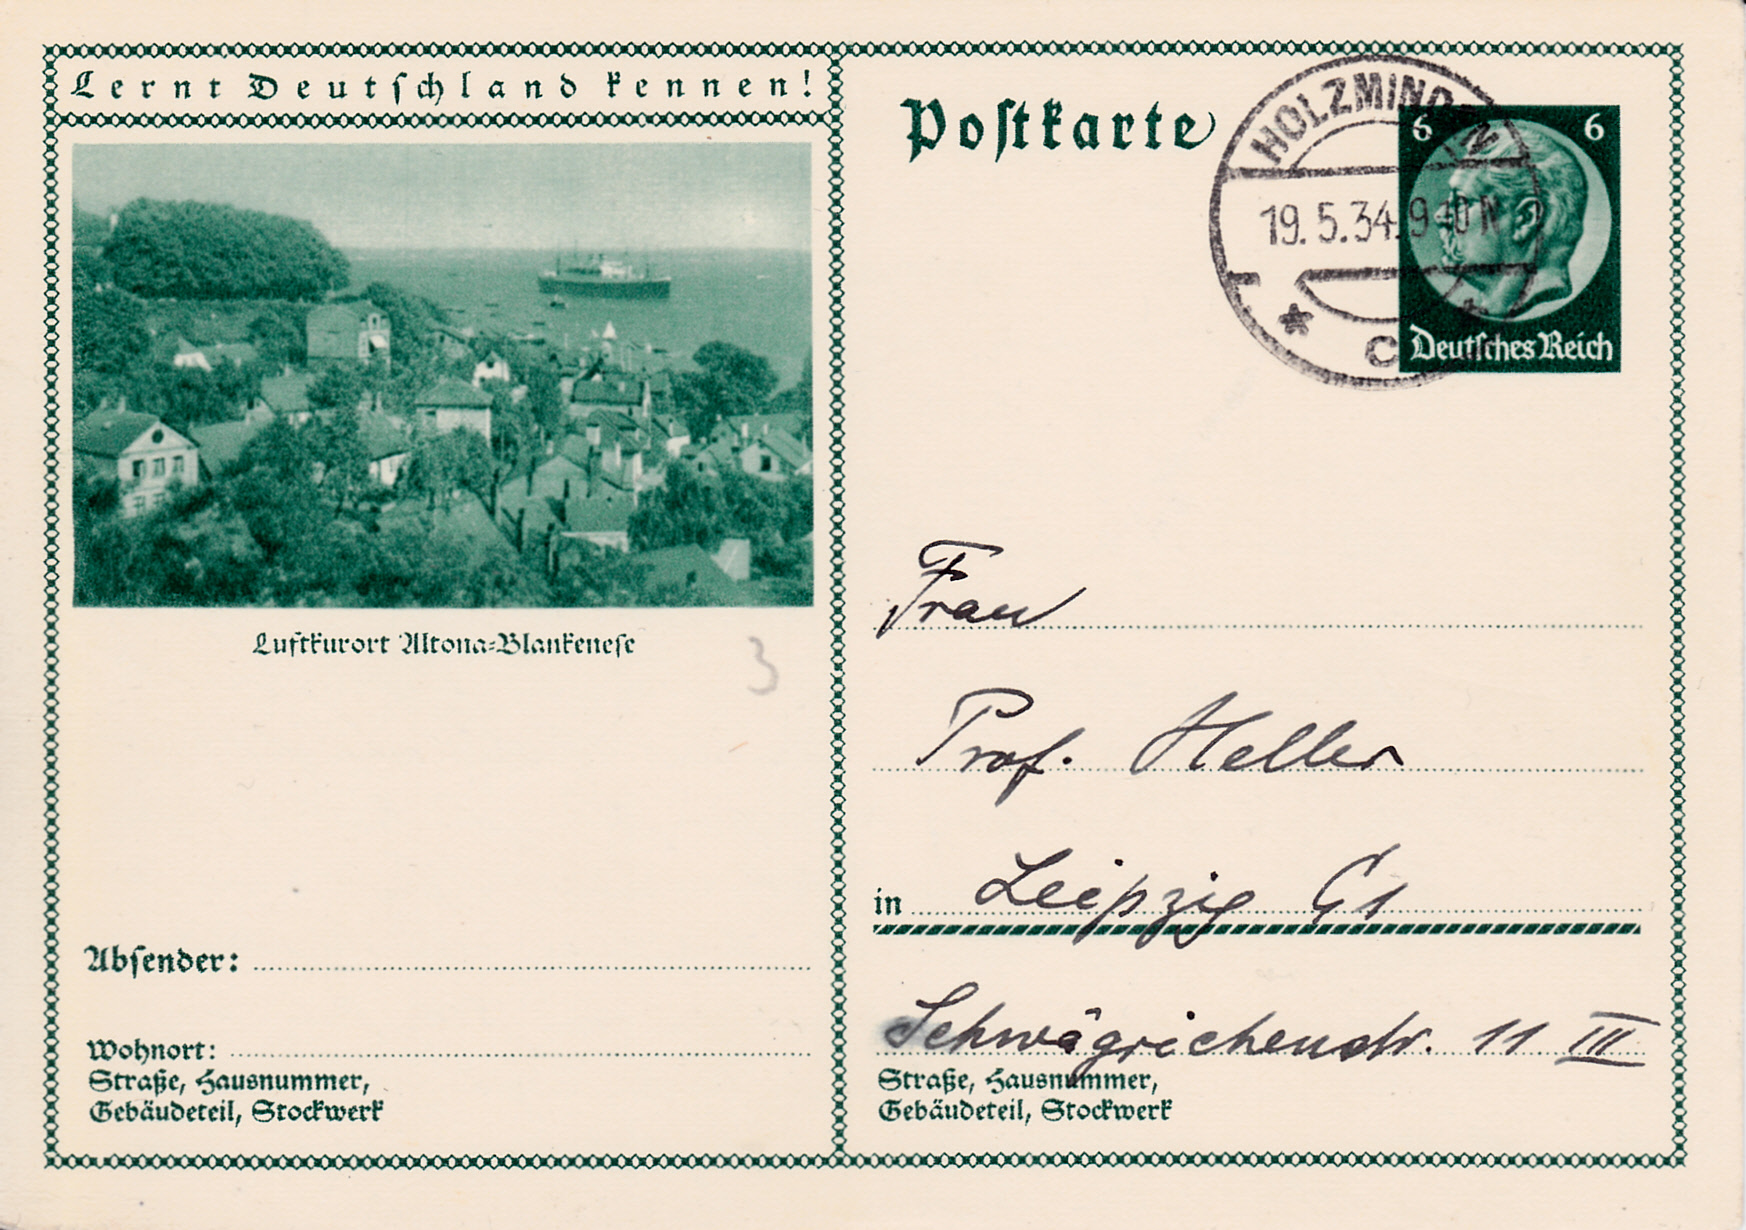 Lernt Deutschland kennen!
Luftkurort Altona-Blankenese
3
Absender:
Wohnort:
Straße, Hausnummer,
Gebäudeteil, Stockwerk
Postkarte
HOLZMINDEN
19.5.34.9-10 N
* c
6 6
Deutsches Reich
Frau
Prof. Heller
in Leipzig C1
Schwägrichenstr. 11 III
Straße, Hausnummer,
Gebäudeteil, Stockwerk